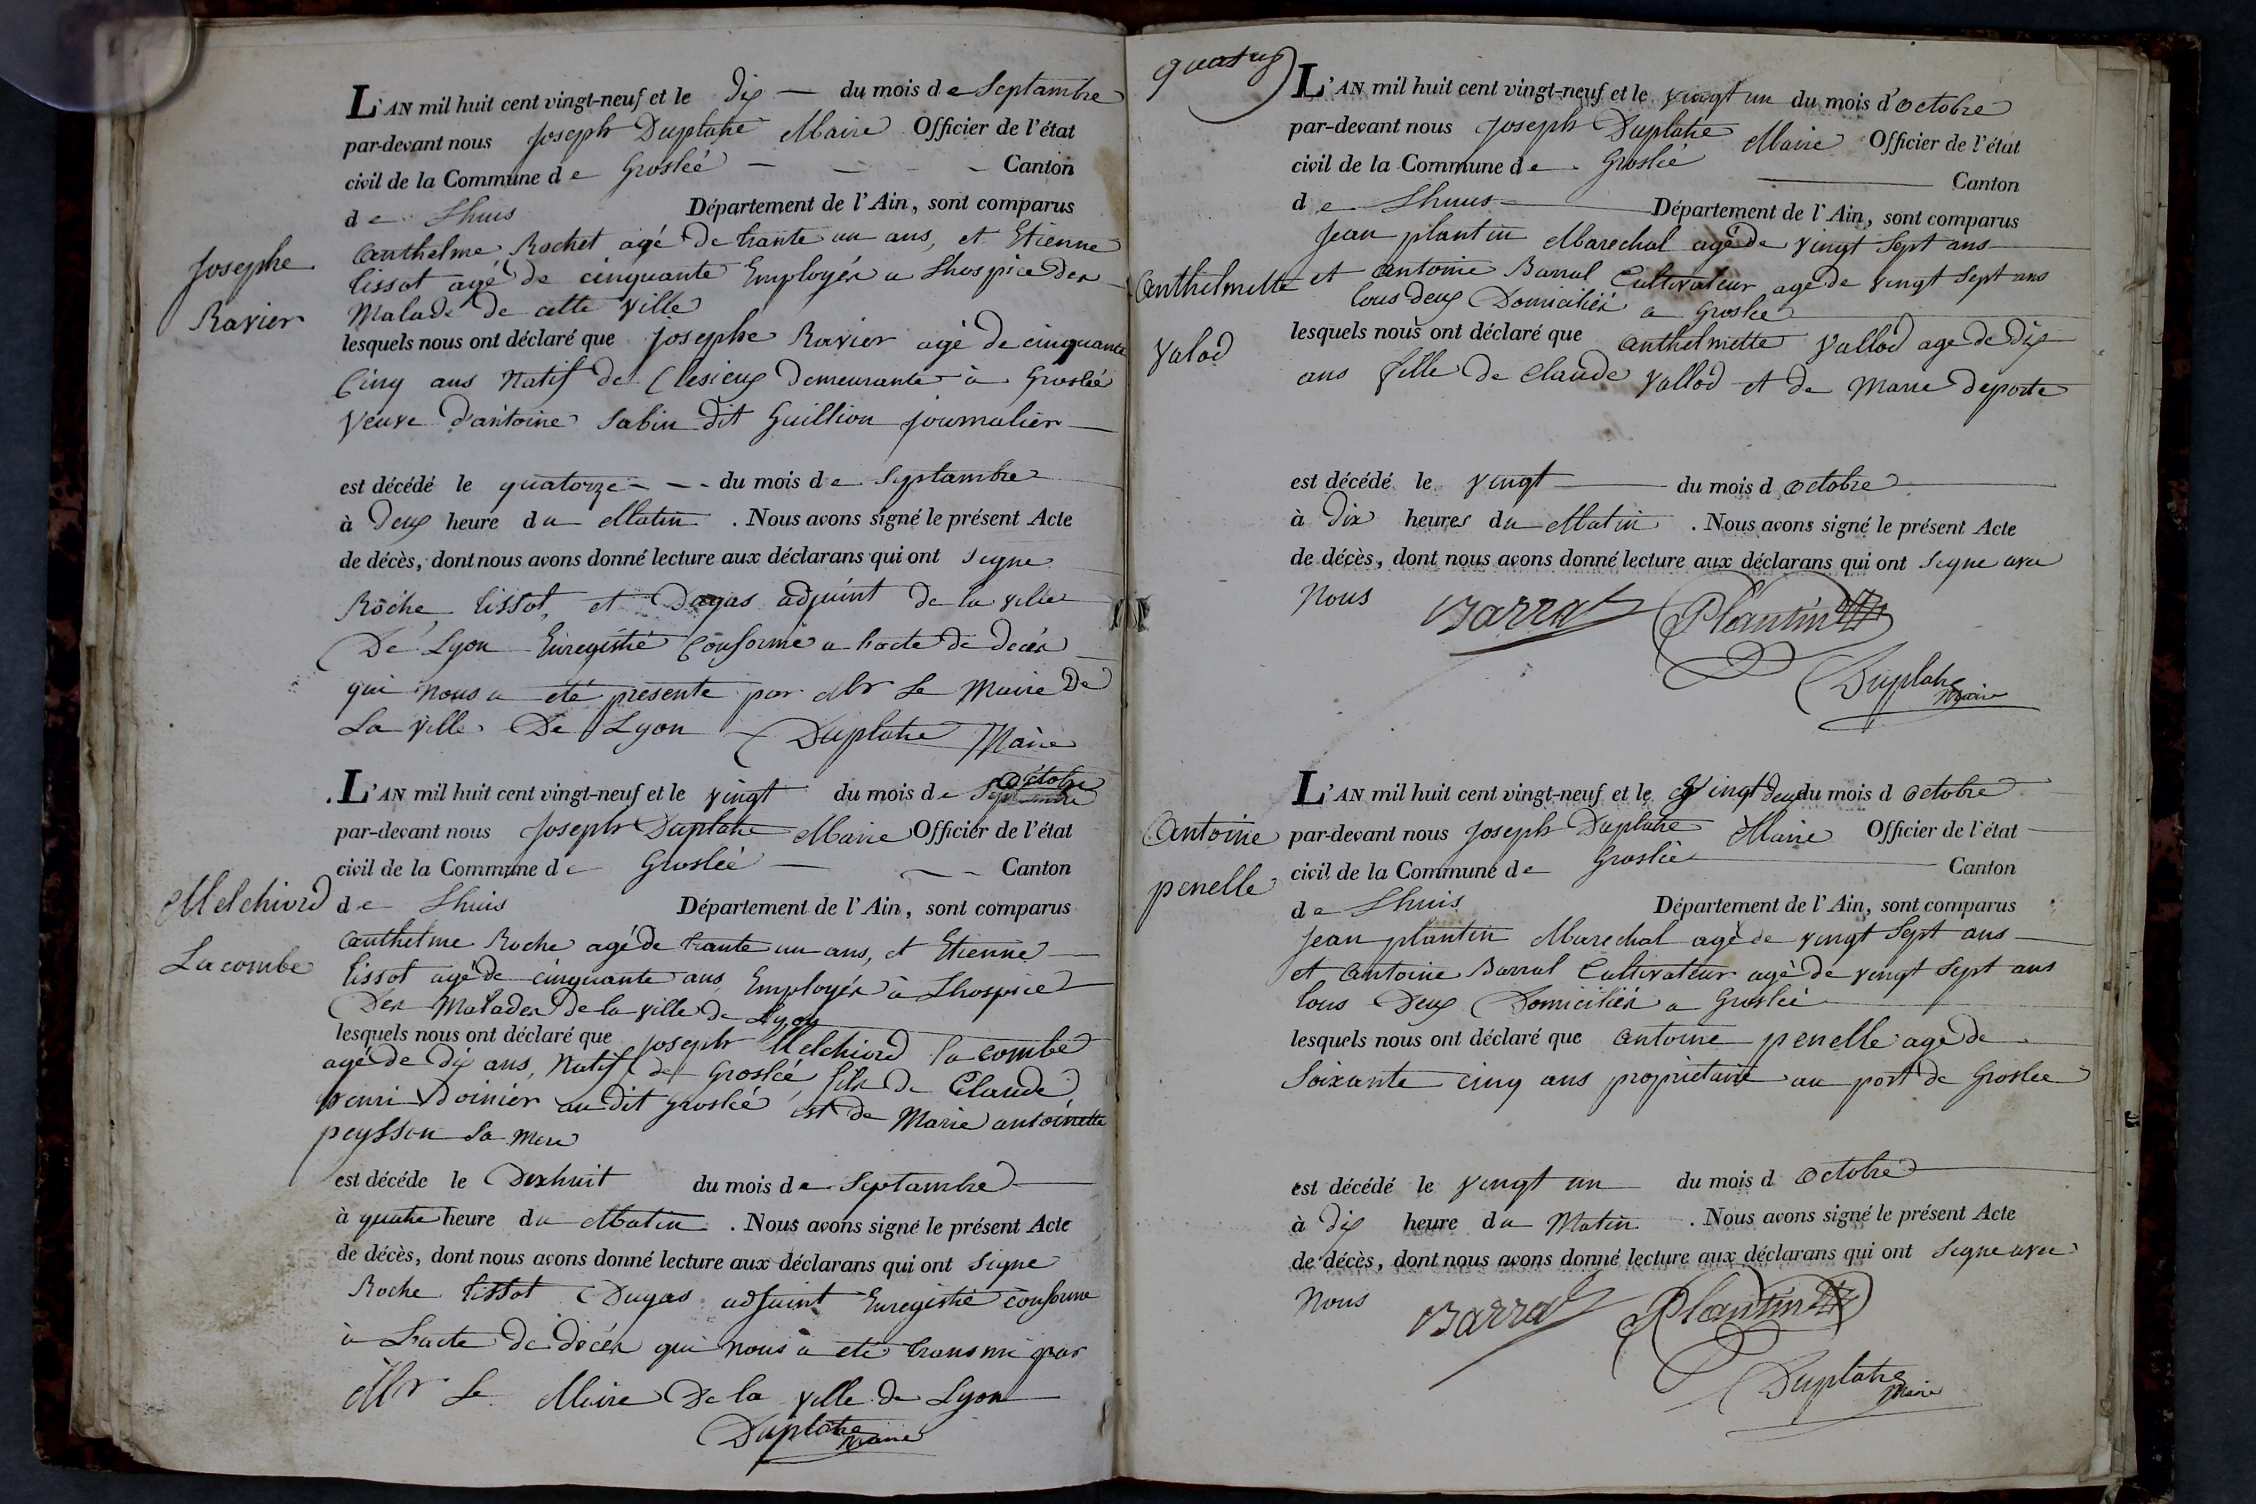 L'AN mil huit cent vingt-neuf et le dix du mois de Septambre
par-devant nous Joseph Duplatre Maire Officier de l'état
civil de la Commune de Groslée Canton
de Lhuis Département de l'Ain, sont comparus
Anthelme Rochet agé de trante un ans, et Etienne
tissot agé de cinquante Employés a Lhospice des
Malade de cette ville
Josephe
Ravier
lesquels nous ont déclaré que Josephe Ravier agé de cinquante
Cinq ans Natif de demeurante à Groslée
Veuve d'antoine Sabin dit Guillion journalier
est décédé le quatorze du mois de Septambre
à Deux heure du Matin . Nous avons signé le présent Acte
de décès, dont nous avons donné lecture aux déclarans qui ont Signe
Roche, tissot, et Dugas adjuint de la velie
De Lyon Enregistré Conforme a lacte de decés
qui nous a eté presente par Mr Le Maire De
La Ville De Lyon Duplatre Maire
L'AN mil huit cent vingt-neuf et le vingt du mois de Octobre
par-devant nous Joseph Duplatre Maire Officier de l'état
civil de la Commune de Groslée Canton
de Lhuis Département de l'Ain, sont comparus
Melchiord
Lacombe
anthelme Roche agé de trante un ans, et Etienne
tissot agé de cinquante ans Employés à Lhospice
Des Malades de la ville de Lyon
lesquels nous ont déclaré que joseph Melchiord la combe
agé de dix ans, Natif de Groslée fils de Claude
henri Doinier au dit groslée est de Marie antoinette
peysson Sa Mere
est décédé le Dixhuit du mois de Septambre
à quatre heure du Matin . Nous avons signé le présent Acte
de décès, dont nous avons donné lecture aux déclarans qui ont Signe
Roche tissot Dugas adjuint Enregistré conforme
à Lacte de décés qui nous a eté transmi par
Mr Le Maire De la Ville de Lyon
Duplatre
Maire
L'AN mil huit cent vingt-neuf et le vingt un du mois d'octobre
par-devant nous Joseph Duplatre Maire Officier de l'état
civil de la Commune de Groslée Canton
de Lhuis Département de l'Ain, sont comparus
Jean plantin Marechal agé de vingt Sept ans
et antoine Barral Cultivateur agé de vingt Sept ans
tous deux Domiciliés a Groslée
Anthelmette
Valod
lesquels nous ont déclaré que anthelmette Vallod age de dix
ans fille de Claude Vallod et de Marie deporte
est décédé le vingt du mois d octobre
à Dix heures du Matin . Nous avons signé le présent Acte
de décès, dont nous avons donné lecture aux déclarans qui ont Signe avec
Nous Barral Plantin
Duplatre
Maire
L'AN mil huit cent vingt-neuf et le vingt deux du mois d octobre
par-devant nous Joseph Duplatre Maire Officier de l'état
civil de la Commune de Groslée Canton
de Lhuis Département de l'Ain, sont comparus
Antoine
penelle
Jean plantin Marechal agé de vingt Sept ans
et antoine Barral Cultivateur agé de vingt Sept ans
tous Deux Domiciliés a Groslée
lesquels nous ont déclaré que antoine penelle age de
Soixante cinq ans proprietaire au port de Groslee
est décédé le vingt un du mois d octobre
à dix heure du Matin . Nous avons signé le présent Acte
de décès, dont nous avons donné lecture aux déclarans qui ont Signe avec
Nous Barral Plantin
Duplatre
Maire